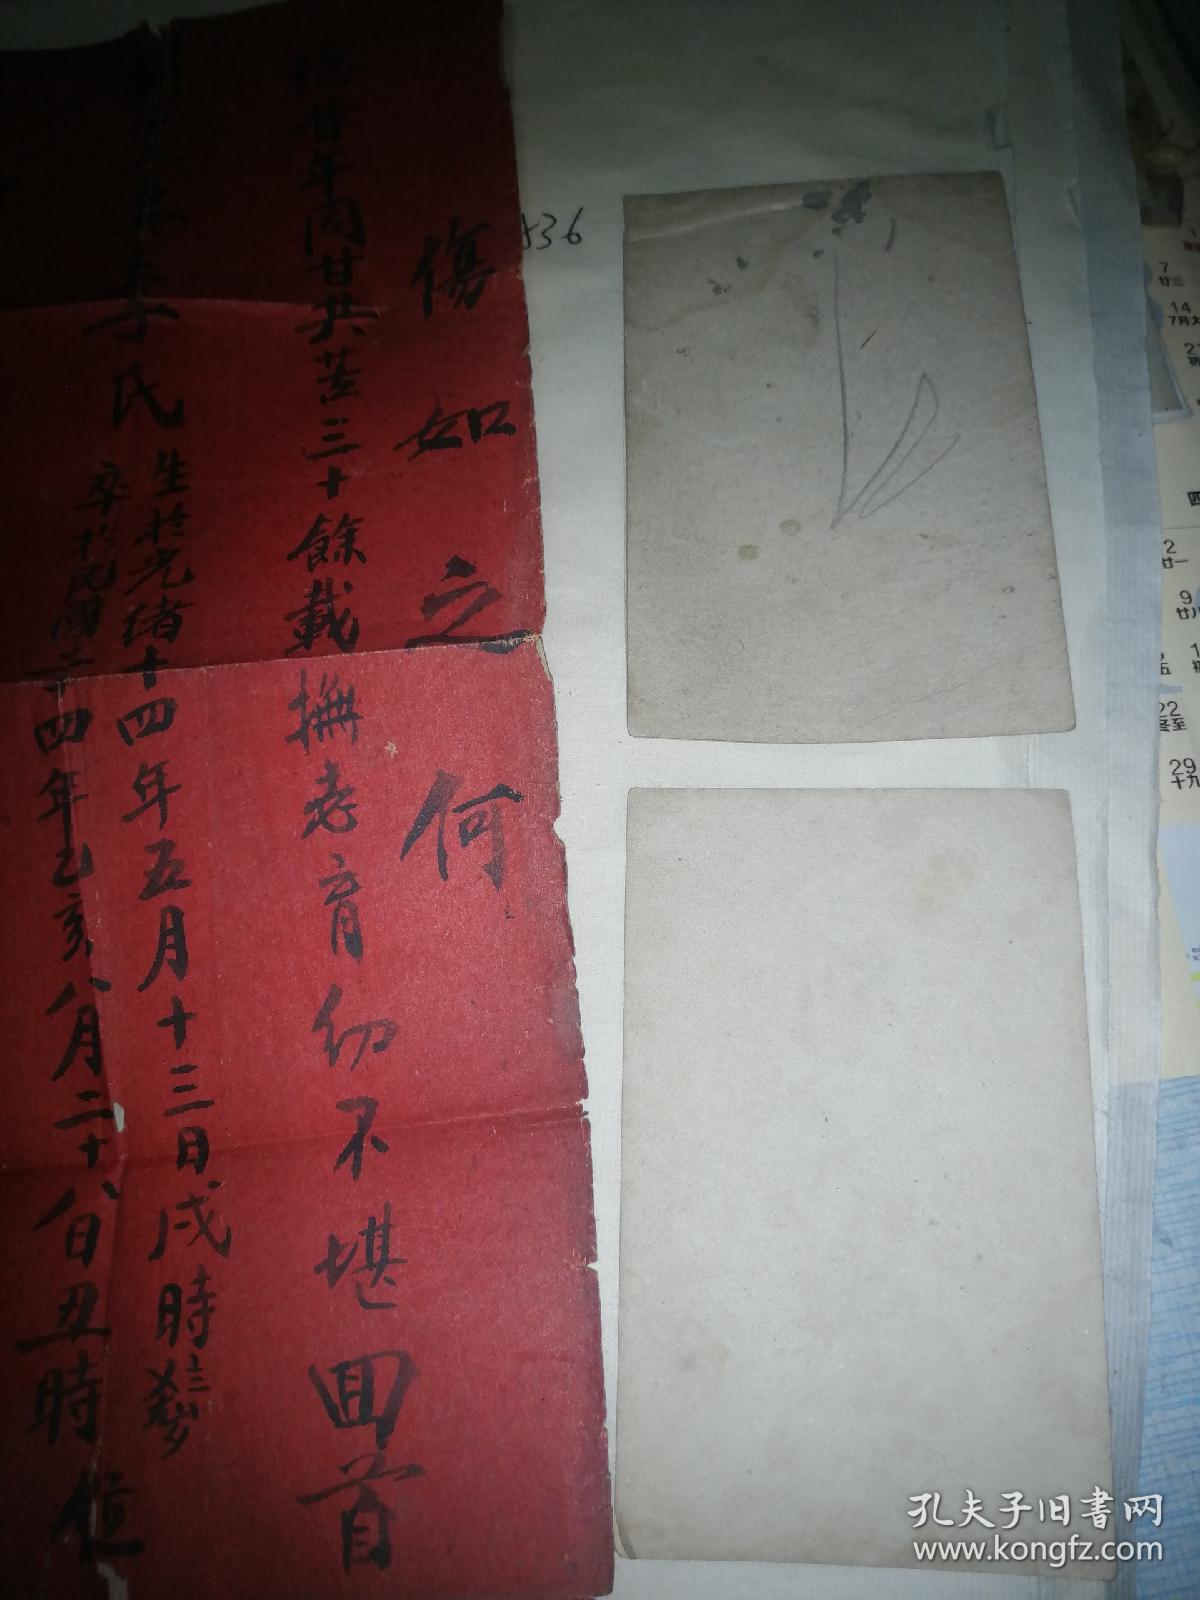 傷如之何
憶昔年同甘共苦三十餘載撫老育幼不堪回首
李氏
生於光绪十四年五月十三日戌時
卒於民國二十四年乙亥八月二十八日丑時
位
36
7
廿三
14
2
廿一
9
22
冬至
29
十九
孔夫子旧书网
www.kongfz.com